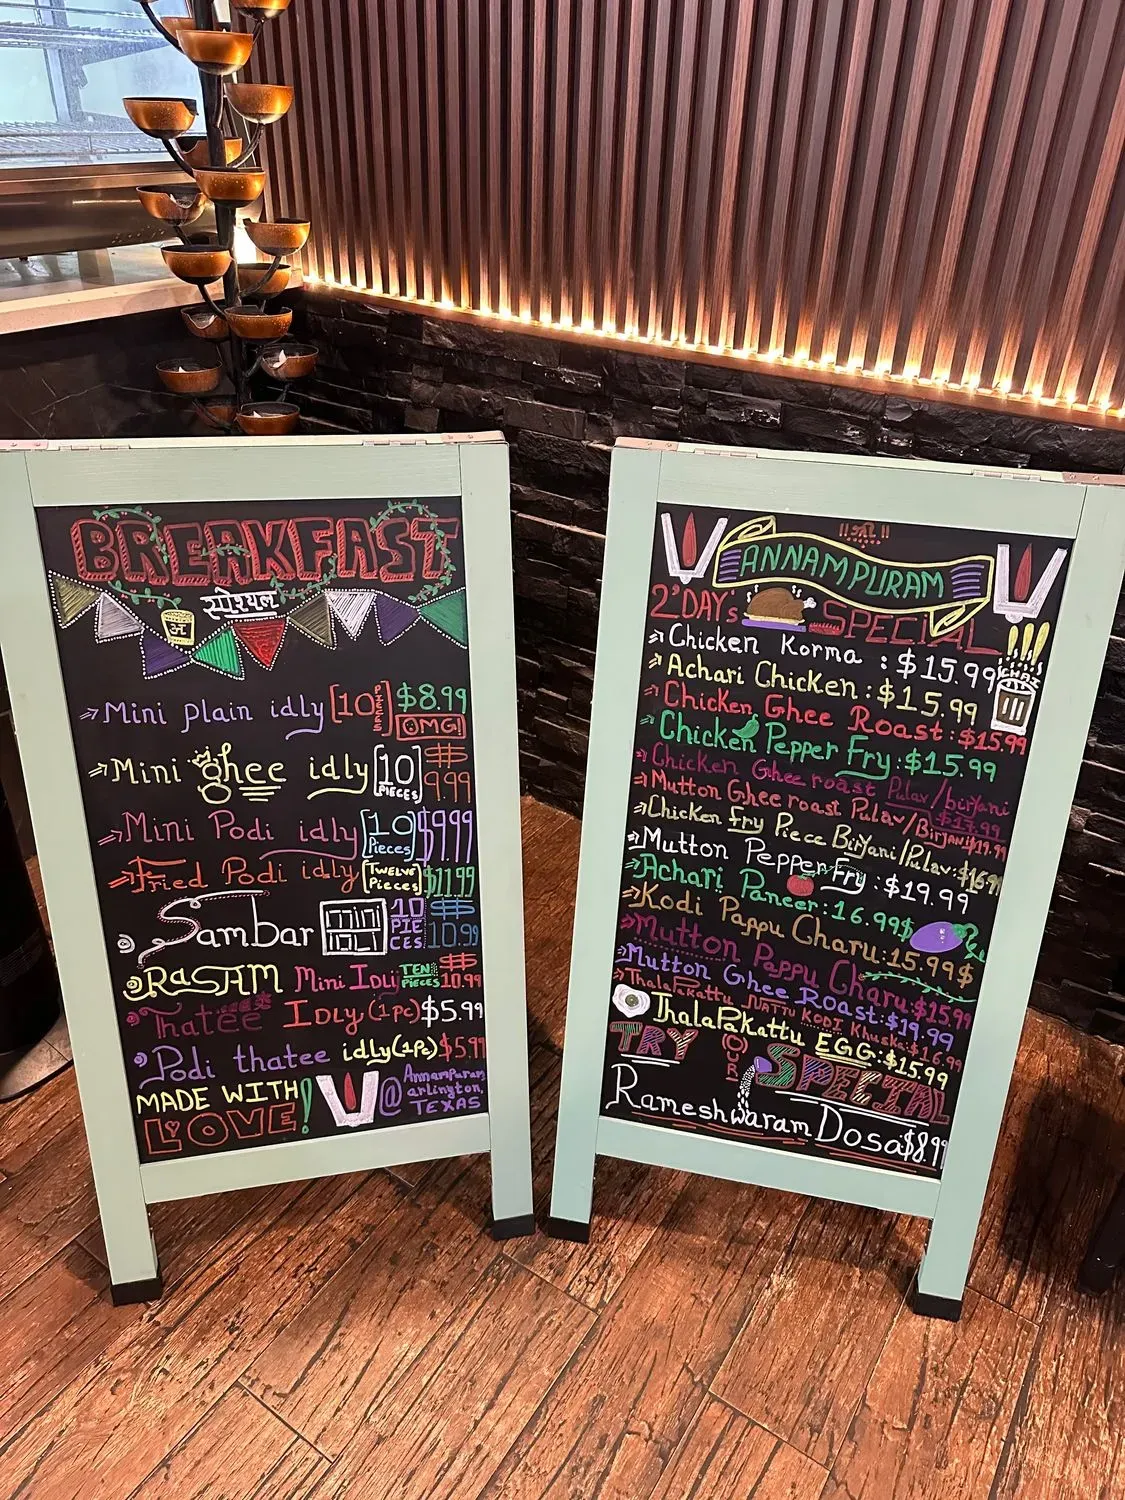 BREAKFAST
स्पेश्यल
Mini plain idly [10 PIECES] $8.99
OMG!
Mini ghee idly [10 PIECES] $ 9.99
Mini Podi idly [10 Pieces] $9.99
Fried Podi idly [TWELVE Pieces] $11.99
Sambar MINI IDLI 10 PIECES $ 10.99
RASAM Mini IDly TEN PIECES $ 10.99
Thatee IDLY (1pc) $5.99
Podi thatee idly(1Pc) $5.99
MADE WITH LOVE!
@ Annampuram arlington, TEXAS
ANNAMPURAM
2'DAY's SPECIAL
Chicken Korma : $15.99
CHAI
Achari Chicken : $15.99
Chicken Ghee Roast : $15.99
Chicken Pepper Fry : $15.99
Chicken Ghee roast Pulav/birjani $17.99
Mutton Ghee roast Pulav/Birjani $19.99
Chicken Fry Piece Birjani/Pulav: $16.99
Mutton Pepper Fry : $19.99
Achari Paneer : 16.99$
Kodi Pappu Charu : 15.99$
Mutton Pappu Charu : $15.99
Mutton Ghee Roast : $19.99
ThalaPakattu NATTU KODI Khuska: $16.99
ThalaPakattu EGG : $15.99
TRY OUR SPECIAL
Rameshwaram Dosa $8.99